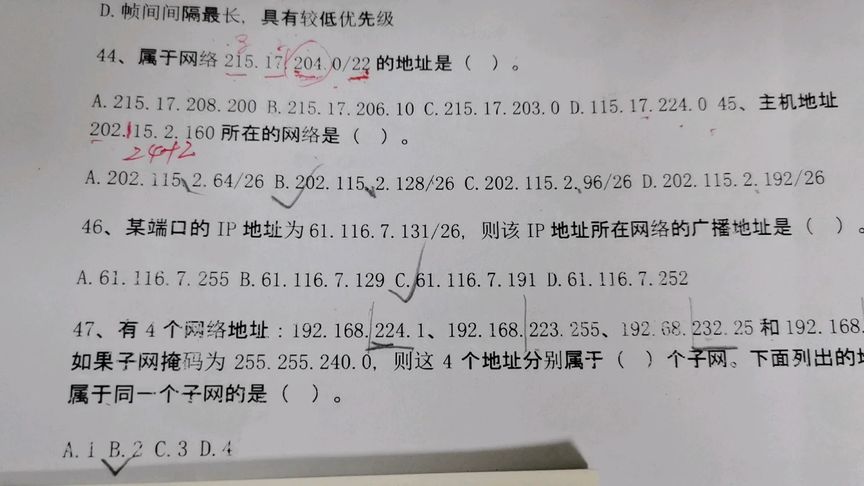 D. 帧间间隔最长, 具有较低优先级
44、属于网络 215.17.204.0/22 的地址是（ ）。
A. 215.17.208.200 B. 215.17.206.10 C. 215.17.203.0 D. 115.17.224.0 45、主机地址
202.115.2.160 所在的网络是（ ）。
24+2
A. 202.115.2.64/26 B. 202.115.2.128/26 C. 202.115.2.96/26 D. 202.115.2.192/26
46、某端口的 IP 地址为 61.116.7.131/26, 则该 IP 地址所在网络的广播地址是（ ）。
A. 61.116.7.255 B. 61.116.7.129 C. 61.116.7.191 D. 61.116.7.252
47、有 4 个网络地址：192.168.224.1、192.168.223.255、192.68.232.25 和 192.168.
如果子网掩码为 255.255.240.0, 则这 4 个地址分别属于（ ）个子网。下面列出的
属于同一个子网的是（ ）。
A. 1 B. 2 C. 3 D. 4